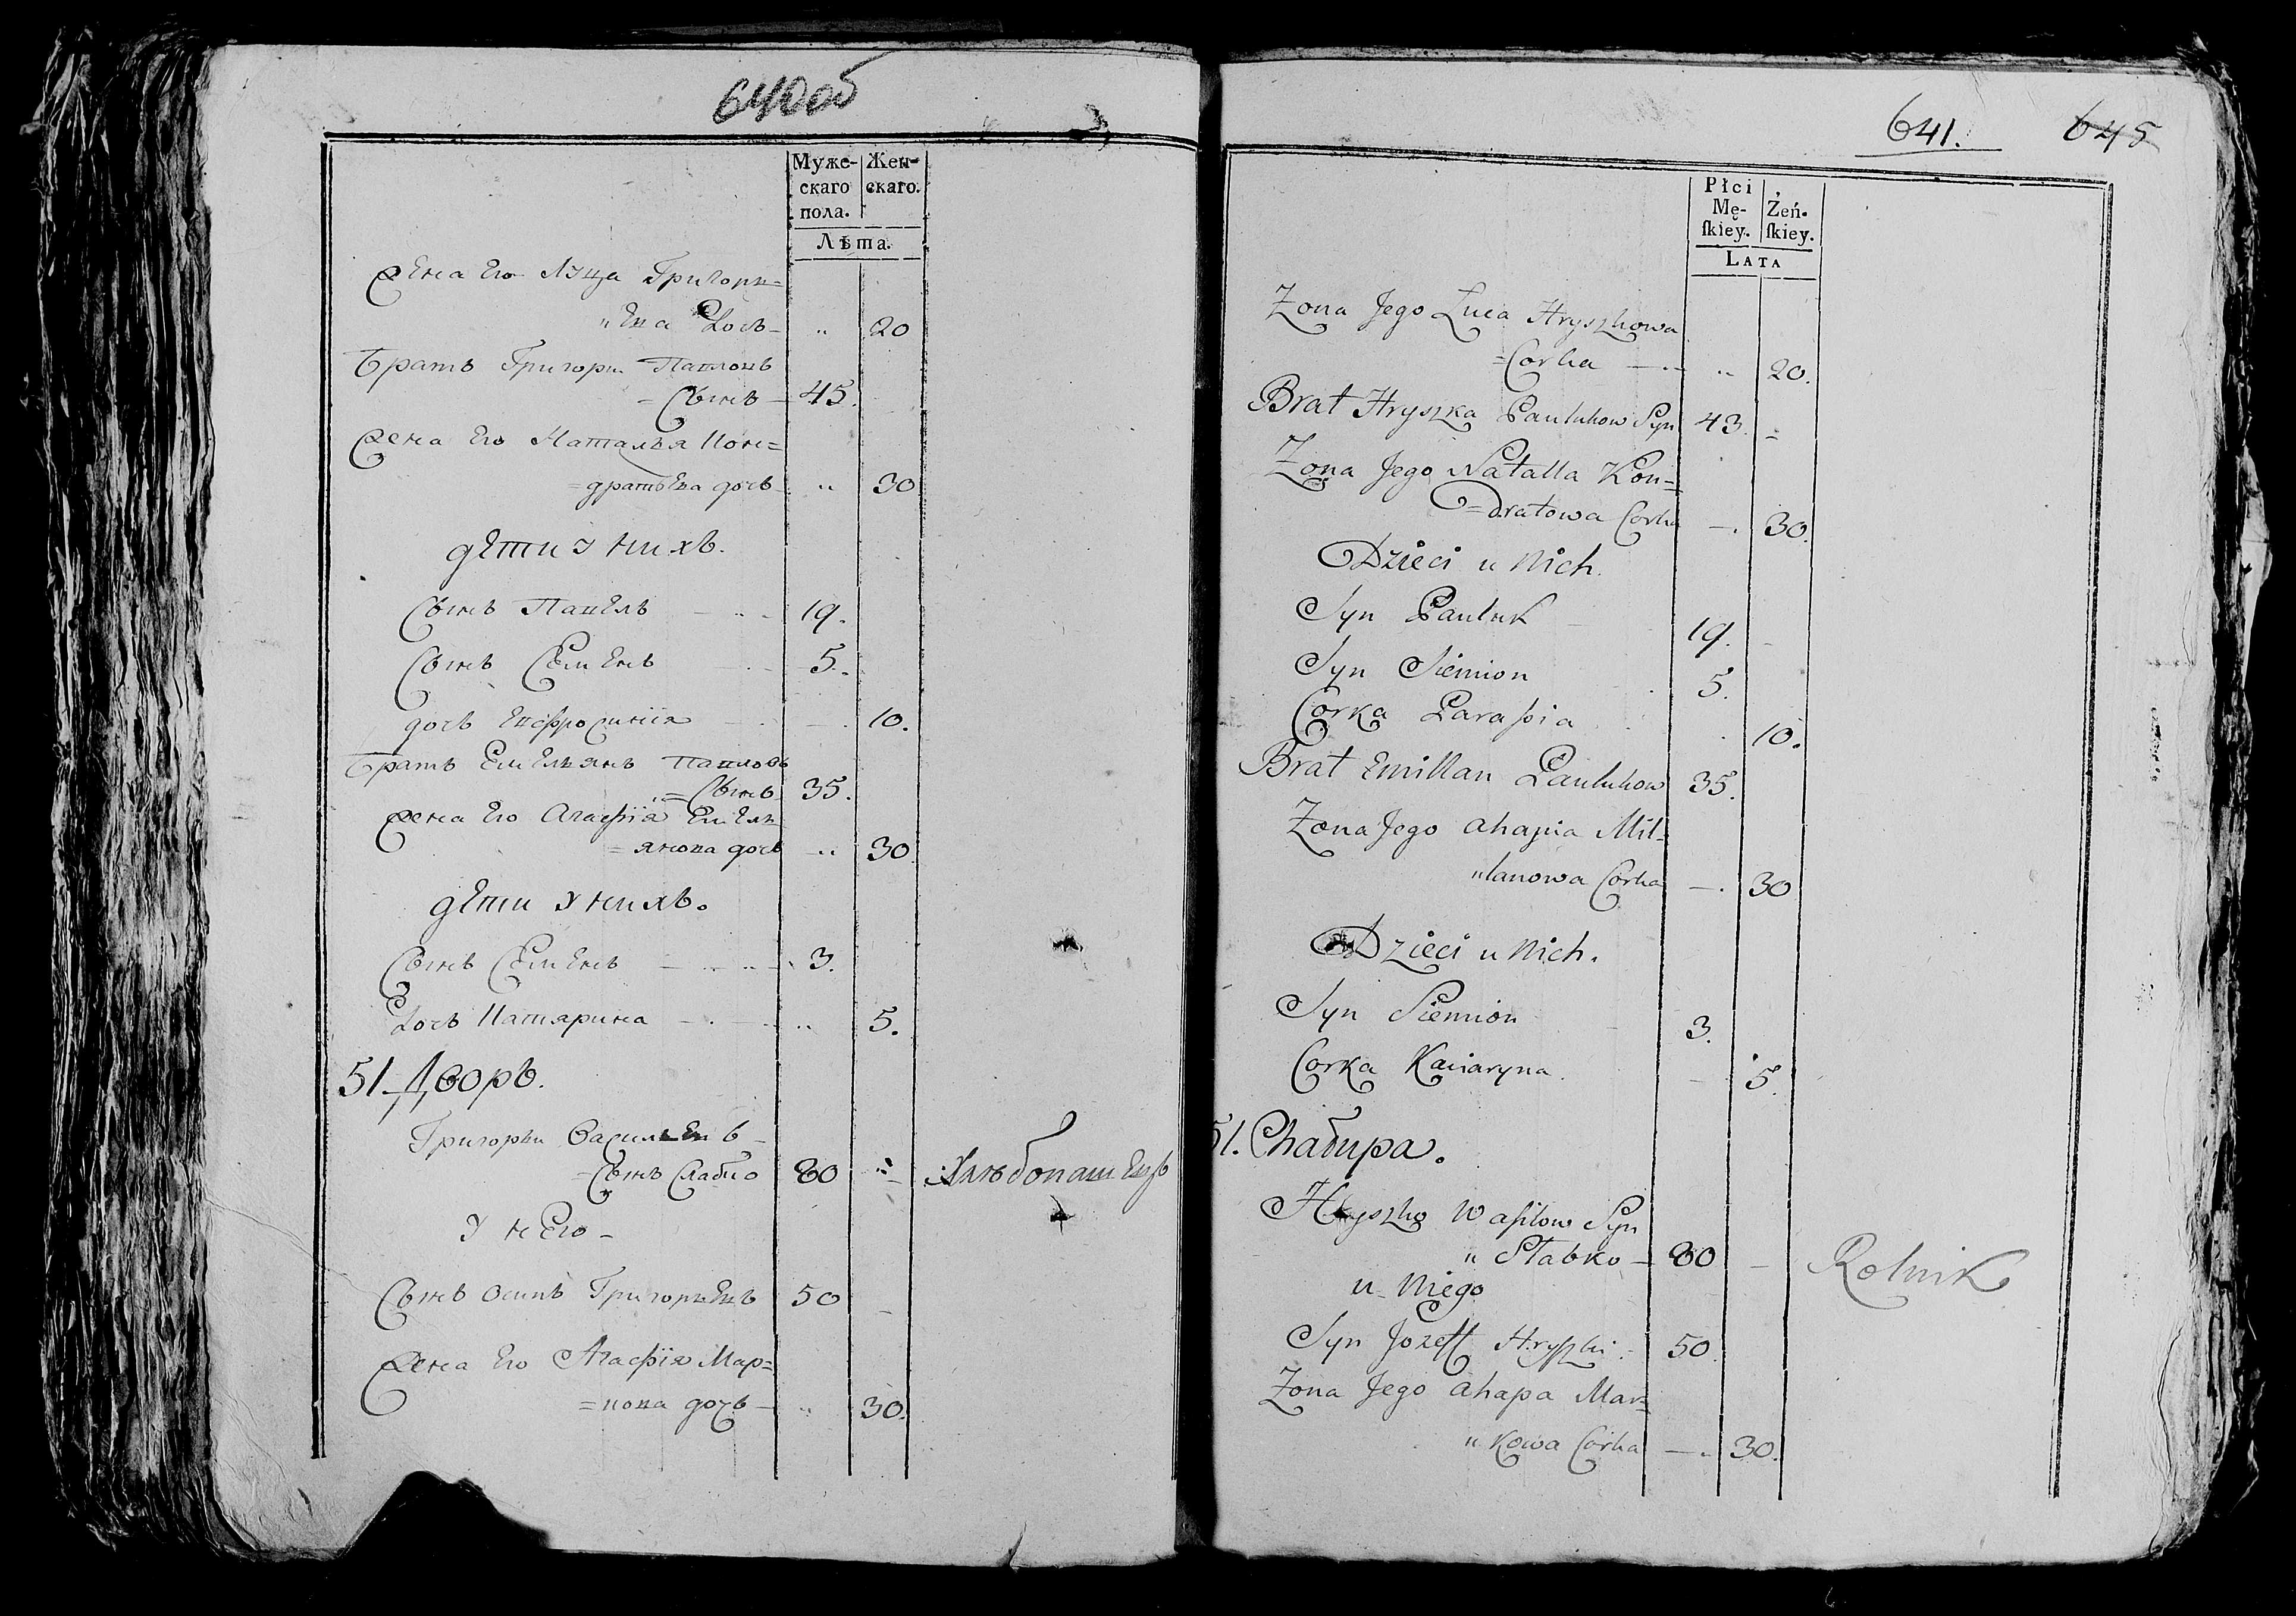 640 об
Муже-
скаго
пола.
Жен-
скаго.
Лѣта.
Жена Его Луца Григорь=
„Ева Дочь — „ 20
Братъ Григори Павловъ
= Сынъ — 45.
Жена Его Наталья Кон=
=дратьева дочь — „ 30
дети у нихъ.
Сынъ Павелъ — 19.
Сынъ Семенъ — 5.
дочь Ефросинія — 10.
Братъ Емельянъ Павловъ
= Сынъ 35.
Жена Его Агафія Емель
= янова дочь — 30.
дети у нихъ.
Сынъ Семенъ — 3.
Дочь Катярина — „ 5.
51 Дворъ.
Григорьи Васильевъ
= Сынъ Слабко 80 „ Хлѣбопашецъ
у него —
Сынъ Осипъ Григорьевъ 50 –
Жена Его Агафія Мар=
=кова дочь — „ 30.
641. 645
Płci
Mę-
ſkiey.
Żeń-
ſkiey.
LATA
Zona Jego Luca Hryszkowa
= Corka — „ 20.
Brat Hryszka Paulukow Syn 43. –
Zona Jego Natalla Kon=
= Dratowa Corka — 30.
Dzieci u Nich.
Syn Pauluk 19. –
Syn Siemion 5.
Corka Paraſia 10.
Brat Emillan Paulukow 35.
Zona Jego Ahapia Mil-
„lanowa Corka — 30
Dzieci u Nich.
Syn Siemion 3.
Corka Kaciaryna. – 5.
51. Chaбира.
Hryszko Waſilow Syn
„ Słabko — 80 – Rolnik
u Niego
Syn Jozeff Hryſzki 50.
Zona Jego Ahapa Mar=
„ Kowa Corka — 30.